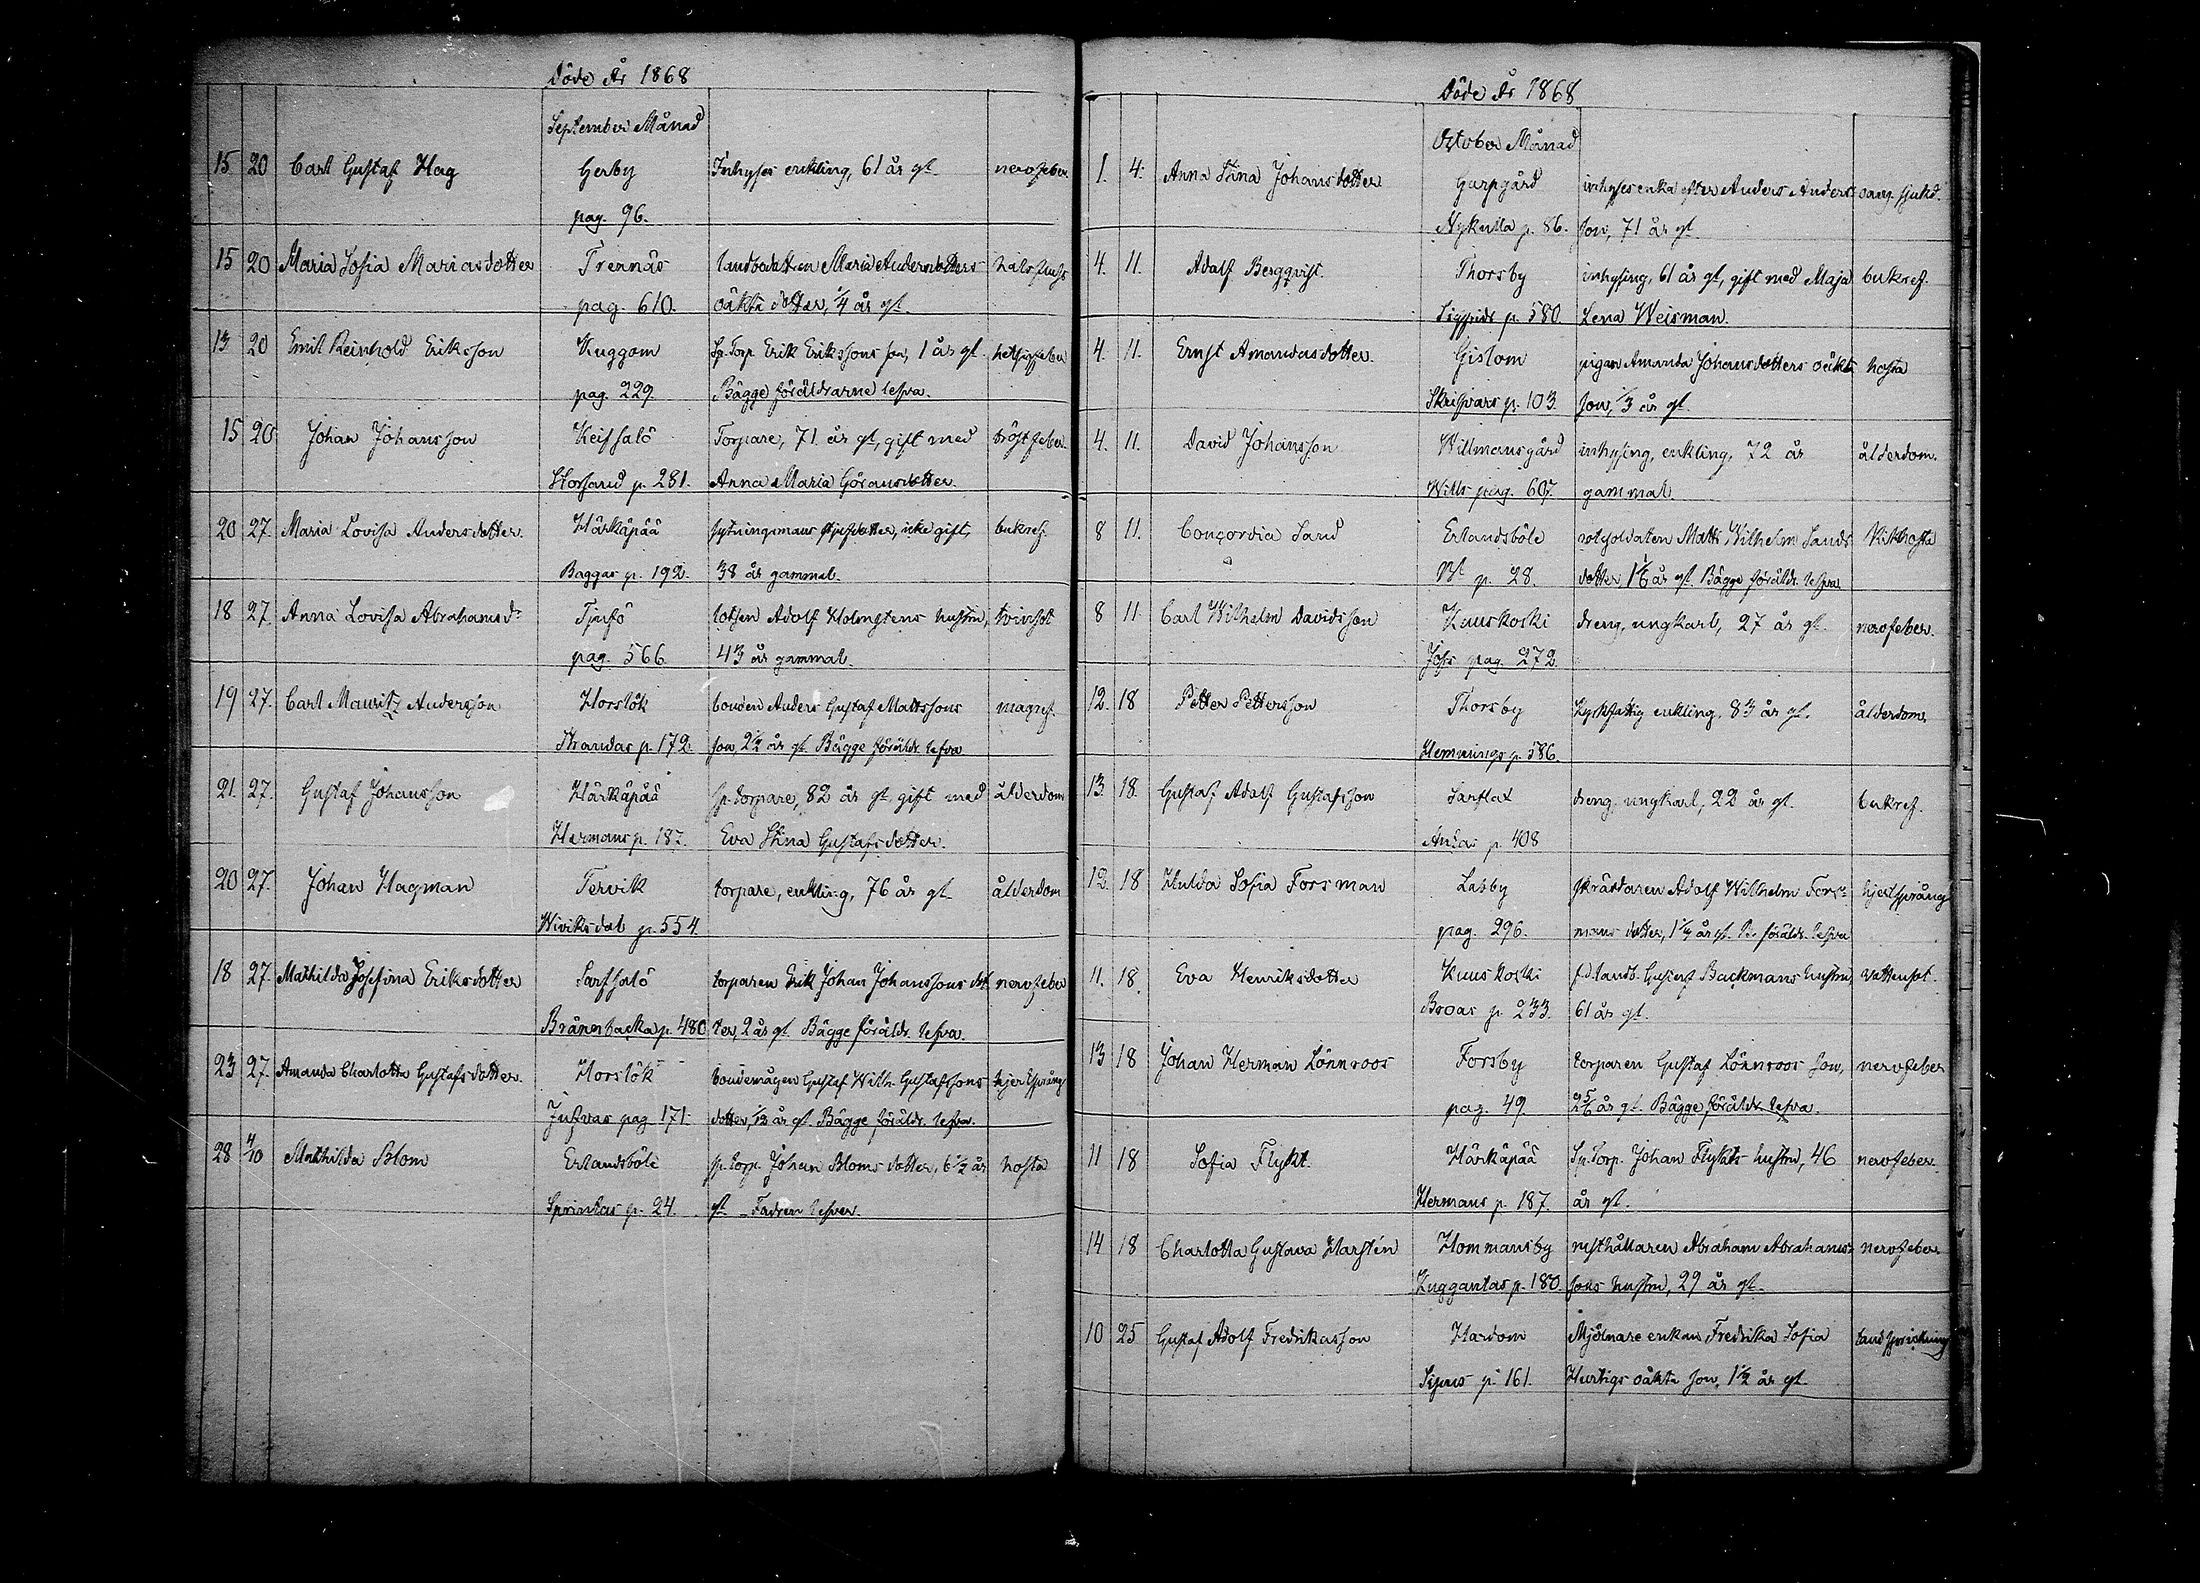 Döde År 1868
September Månad
15 20 Carl Gustaf Hag Gerby Inhyses enkling, 61 år gl. nervfeber
pag. 96.
15 20 Maria Sofia Mariasdotter Trennäs landbodottren Maria Andersdotters
pag. 610. oäkta dotter, 1/4 år gl.
13 20 Emil Reinhold Eriksson Kuggom Sp. Torp. Erik Erikssons son, 1 år gl.
pag. 229 Bägge föräldrarne lefva.
15 20 Johan Johansson Keitsalö Torpare, 71 år gl, gift med bröstfeber
Storsand p. 281. Anna Maria Göransdotter.
20 27. Maria Lovisa Andersdotter. Härkäpää sytningsmans styfdotter, icke gift, bukref.
Baggas p. 192. 38 år gammal.
18 27. Anna Lovisa Abrahamsdr Tjusö lotsen Adolf Holmstens hustru, tvinsot
pag. 566 43 år gammal.
19 27. Carl Mauritz Andersson Horslök bonden Anders Gustaf Mattssons magref.
Strandas p. 172 son, 2 1/2 år gl. Bägge föräldr. lefva
21. 27. Gustaf Johansson Härkäpää sp. torpare, 82 år gl, gift med ålderdom
Hermans p. 187. Eva Stina Gustafsdotter.
20 27. Johan Hagman Tervik torpare, enkling, 76 år gl. ålderdom
Wiviksdal p. 554.
18 27. Mathilda Josefina Eriksdotter Sarfsalö torparen Erik Johan Johanssons dot nervfeber
Brännbacka p. 480 ter, 2 år gl. Bägge föräldr. lefva.
23 27. Amanda Charlotta Gustafsdotter. Horslök bondemågen Gustaf Wilh. Gustafssons hjertsprång
Jusvas pag 171. dotter, 1/12 år gl. Bägge föräldr. lefva.
28 4/10 Mathilda Blom Erlandsböle sp. torp. Johan Bloms dotter, 6 1/2 år hosta
Sprintas p. 24. gl. Fadren lefver.
Döde År 1868
October Månad
1. 4. Anna Stina Johansdotter Garpgård inhyses enka efter Anders Anders= sjukd.
Nykulla p. 86. son, 71 år gl.
4. 11. Adolf Bergqvist. Thorsby inhysing, 61 år gl, gift med Maja bukref.
Sigfrids p. 580. Lena Weisman.
4. 11. Ernst Amandasdotter. Gislom pigan Amanda Johansdotters oäkta hosta
Skrifvars p. 103. son, 1/3 år gl.
4. 11. David Johansson Willmansgård inhysing, enkling, 72 år ålderdom.
Wills pag. 607. gammal
8 11. Concordia Sand Erlandsböle rotesoldaten Matts Wilhelm Sands Kikhosta
p. 28. dotter, 1 1/6 år gl. Bägge föräldr. lefva
8 11 Carl Wilhelm Davidsson Kuuskoski dreng, ungkarl, 27 år gl. nervfeber.
Jofs pag. 272
12. 18 Petter Pettersson Thorsby kyrkfattig enkling, 83 år gl. ålderdom.
Hemmings p. 586.
13. 18. Gustaf Adolf Gustafsson Sarflax dreng, ungkarl, 22 år gl. bukref.
Antas p 408
12. 18 Hulda Sofia Forsman Labby skräddaren Adolf Wilhelm Fors= hjertsprång
pag. 296. mans dotter, 1 1/4 år gl. föräldr. lefva
11. 18. Eva Henriksdotter Kuuskoski f.d. landb. Gustaf Backmans hustru, vattensot.
Broas p. 233. 61 år gl.
13 18 Johan Herman Lönnroos Forsby torparen Gustaf Lönnroos son, nervfeber
pag. 49 2 5/6 år gl. Bägge föräldr. lefva.
11 18 Sofia Flykt. Härkäpää Sp. Torp. Johan Flykts hustru, 46 nervfeber
Hermans p. 187. år gl.
14 18 Charlotta Gustava Harstén Hommansby rusthållaren Abraham Abrahams= nervfeber
Kuggantas p. 180. sons hustru, 29 år gl.
10 25 Gustaf Adolf Fredrikasson Hardom Mjölnare enkan Fredrika Sofia tandsprickning
p. 161. Hurtigs oäkta son, 1 1/2 år gl.